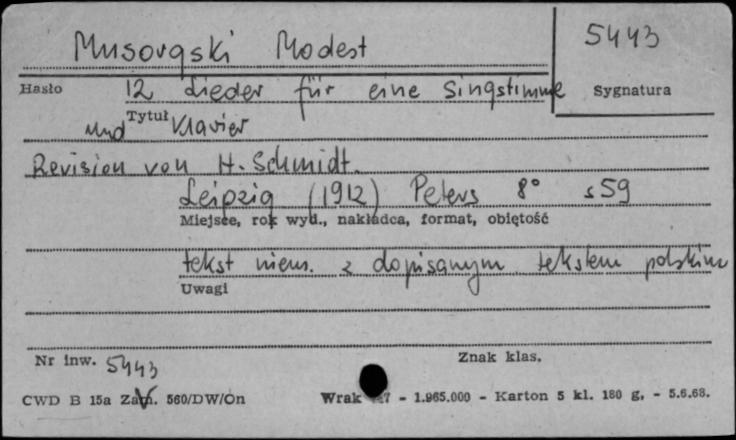 Musorgski Modest
5443
Hasło
12 Lieder für eine Singstimme
Sygnatura
Tytuł
und Klavier
Revision von H. Schmidt.
Leipzig (1912) Peters 8° s 59
Miejsce, rok wyd., nakładca, format, objętość
tekst niem. z dopisanym tekstem polskim
Uwagi
Nr inw. 5443
Znak klas.
CWD B 15a Zam. 560/DW/On
Wrak - 1.965.000 - Karton 5 kl. 180 g. - 5.6.68.